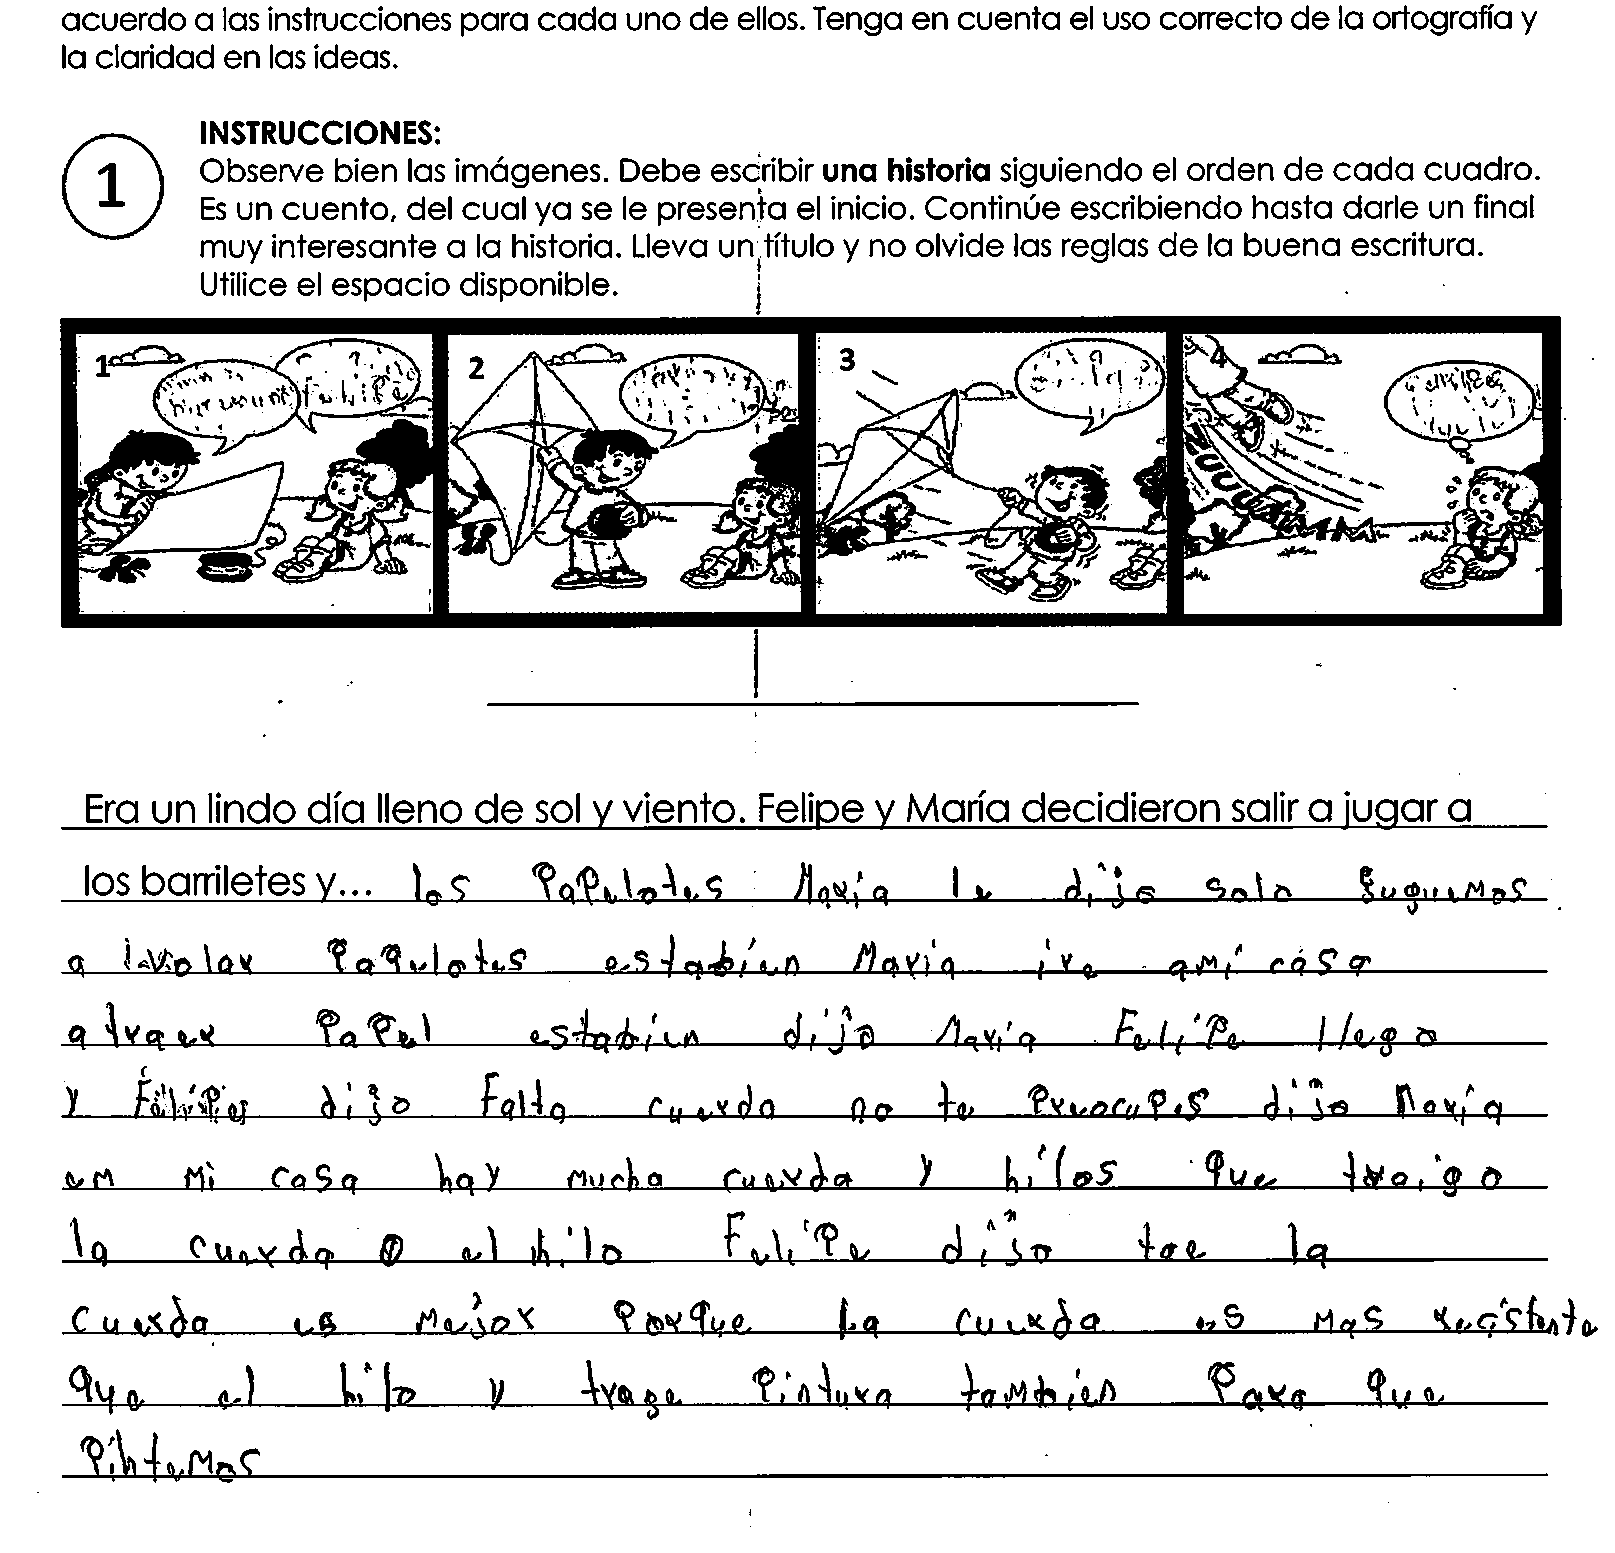 acuerdo a las instrucciones para cada uno de ellos. Tenga en cuenta el uso correcto de la ortografía y
la claridad en las ideas.
1
INSTRUCCIONES:
Observe bien las imágenes. Debe escribir una historia siguiendo el orden de cada cuadro.
Es un cuento, del cual ya se le presenta el inicio. Continúe escribiendo hasta darle un final
muy interesante a la historia. Lleva un título y no olvide las reglas de la buena escritura.
Utilice el espacio disponible.
1 2 3 4
Era un lindo día lleno de sol y viento. Felipe y María decidieron salir a jugar a
los barriletes y... los Papelotes María le dijo solo guguemos
a volar Papelotes estabien Maria ire ami casa
a traer Papel estabien dijo María Felipe llego
y dijo Falta cuerda no te Preocupes dijo María
em mi casa hay mucha cuerda y hilos que traigo
la cuerda o el hilo Felipe dijo tae la
cuerda es mejor Porque la cuerda es mas
que el hilo y trage Pintura tambien Para que
Pintemos